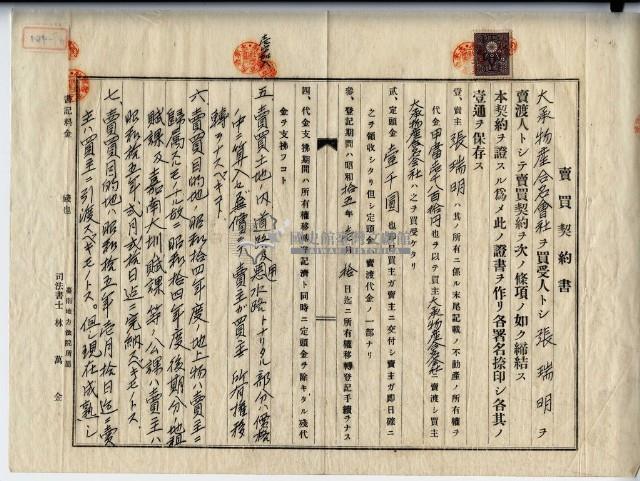 賣買契約書
大承物產合名會社ヲ買受人トシ張瑞明ヲ
賣渡人トシテ賣買契約ヲ次ノ條項ノ如ク締結ス
本契約ヲ證スル爲メ此ノ證書ヲ作リ各署名捺印シ各其ノ
壹通ヲ保存ス
壹、賣主張瑞明ハ其ノ所有ニ係ル末尾記載ノ不動產ノ所有權ヲ
代金 八百拾圓也ヲ以テ買主大承物產合名會社ニ賣渡シ買主
大承物產合名會社ハ之ヲ買受ケタリ
貳、定頭金壹千圓也ヲ買主ガ賣主ニ交付シ賣主ガ即日確ニ
之ヲ領收シタリ但シ定頭金ハ賣渡代金ノ一部ナリ
參、登記期間ハ昭和拾五年 月 拾日迄ニ所有權移轉登記手續ヲナス
四、代金支拂期間ハ所有權移轉登記濟ト同時ニ定頭金ヲ除キタル殘代
金ヲ支拂フコト
五、賣買土地ノ內道路及惡水路トナリタル部分ハ價格
中ニ算入セズ無償ニテ賣主ガ買主ニ所有權移
轉ヲナスベキモノトス
六、賣買目的地ノ昭和拾四年度ノ地上物ハ賣主ニ
歸屬スルモノナル故ニ昭和拾四年度後期分ノ地租
賦課及嘉南大圳賦課等ノ公課ハ賣主ハ
昭和拾五年貳月貳拾日迄ニ完納スベキモノトス
七、賣買目的地ハ昭和拾五年 月拾日迄ニ賣
主ハ買主ニ引渡スベキモノトス。但シ現在成熟シ
書記料金 錢也
臺南地方法院所屬
司法書士 林萬金
國史館臺灣文獻館